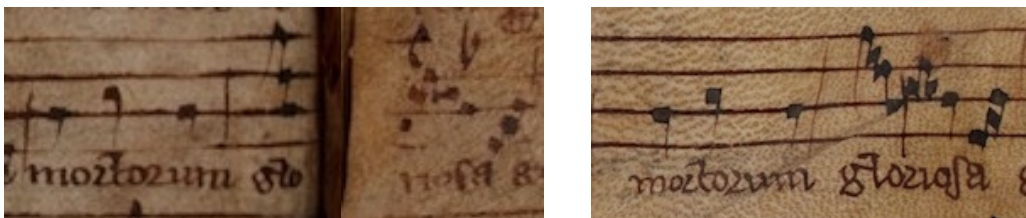 mortorum glo riosa
mortorum gloriosa